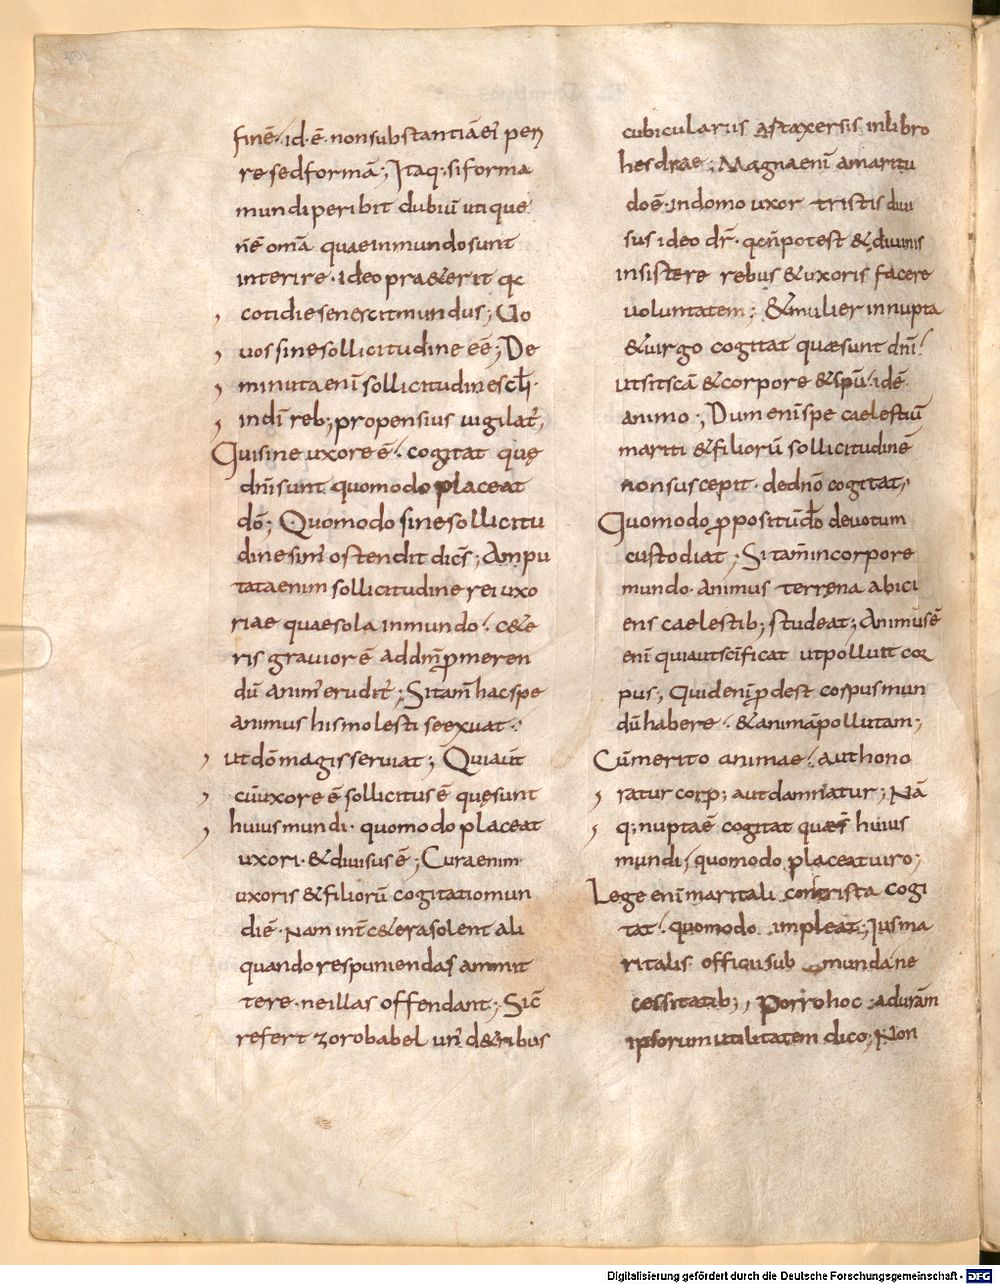 finē· id·ē· non substantiā ei᷒ peri
re sed formā; Itaq; si forma
mundi peribit dubiū uti que
n̄ē omā quae in mundo sunt
interire· ideo pra&erit qc
cotidie senescit mundus; Uo
uos sine sollicitudine ēē; De
minuta eni᷒ sollicitudine scl̄i·
in dī reb; propensius uigilat᷒
Qui sine uxore ē· cogitat quę
dn̄i sunt quomodo placeat
dō; Quomodo sine sollicitu
dine sim᷒ ostendit dic̄s; Ampu
tata enim sollicitudine rei uxo
riae quae sola in mundo· c&e
ris grauior ē ad dn̄m ꝓmeren
dū anim᷒ erudit᷒; Si tam̄ hac spe
animus his molestis e exuat·
ut dō magis seruiat; Qui aūt
cū uxore ē sollicitus ē quę sunt
huius mundi· quomodo placeat
uxori· & diuisus ē; Cura enim
uxoris & filiorū cogitatio mun
di ē· Nam int̄ c&era solent ali
quando res puniendas ammit
tere· ne illas offendant; Sic̄
refert zorobabel un᷒ de tribus
cubicularus astaxersis in libro
hesdrae; Magna eni᷒ amaritu
do ē· in domo uxor tristis diui
sus ideo dr̄· qc n̄ potest & diuinis
insistere rebus & uxoris facere
uoluntatem; & mulier innupta
& uirgo cogitat quæ sunt dn̄i·
ut sit sc̄a & corpore & sp̄u· id ē
animo; Dum eni᷒ spe caelestiū
mariti & filiorū sollicitudinē
non suscepit· de dn̄o cogitat,
Quomodo ꝓpositū dō deuotum
custodiat; Si tam̄ in corpore
mundo· animus terrena abici
ens caelestib; studeat; Animus ē
eni᷒ qui aut sc̄ificat ut polluit cor
pus; Quid eni᷒ ꝓdest corpus mun
dū habere· & animā pollutam;
Cū merito animae· aut hono
ratur corp; aut damnatur; Nā
q; nupta ē cogitat quæ s̄ huius
mundi; quomodo placeat uiro;
Lege eni᷒ maritali constricta cogi
tat· quomodo impleat; Ius ma
ritalis officii sub munda ne
cessitatib;, Porro hoc ad uram
ipsorum utilitatem dico; Non
Digitalisierung gefördert durch die Deutsche Forschungsgemeinschaft - DFG